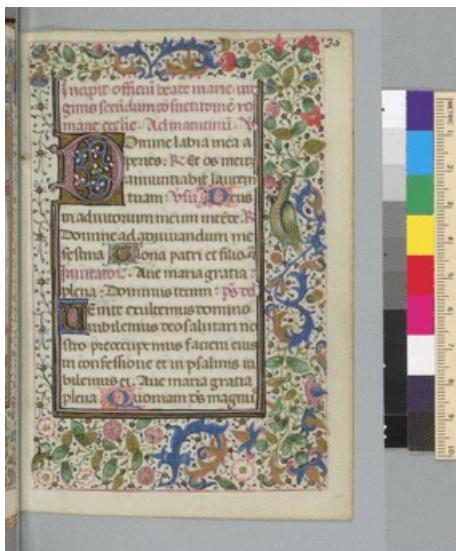 35
Incipit officiũ beate marie vir
ginis secundum cõsuetudinẽ ro
mane ecclie. Ad matutinũ. V
Domine labia mea a
peries: R: Et os meum
annuntiabit laudem
tuam: Vsũ Deus
in adiutorium meum intẽde. R
Domine ad adiuuandum me
festina Gloria patri et filio.
Inuitatoř. Aue maria gratia
plena: Dominus tecum: ps
Uenite exultemus domino
iubilemus deo salutari no
stro preoccupemus faciem eius
in confessione et in psalmis iu
bilemus ei. Aue maria gratia
plena Quoniam d̃s magnus
METRIC
1
2
3
4
5
6
7
8
9
10